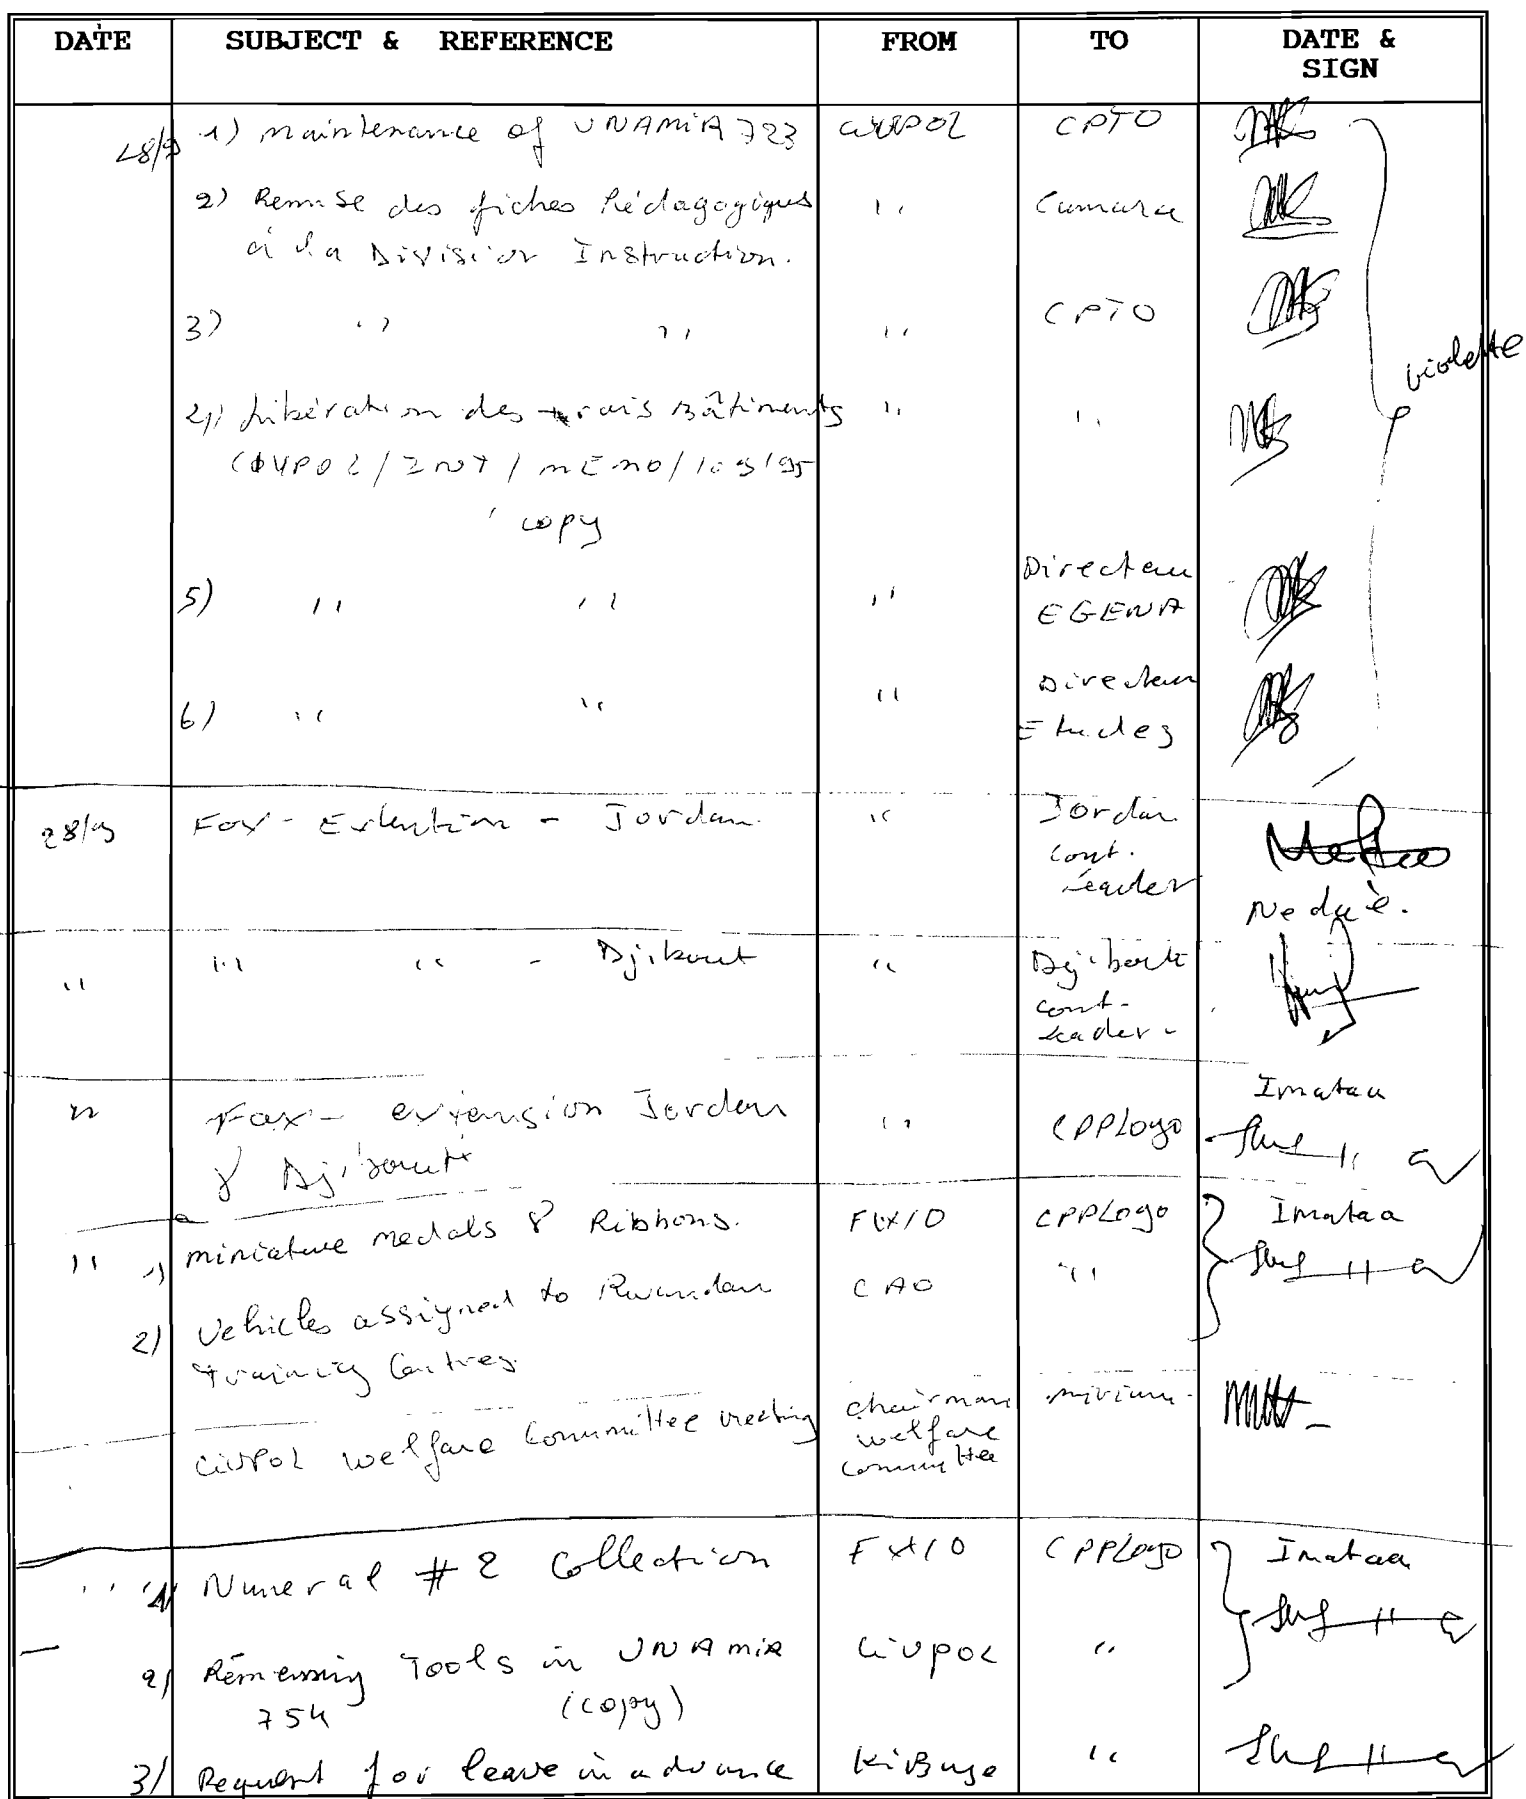 DATE SUBJECT & REFERENCE FROM TO DATE & SIGN
28/9 1) maintenance of UNAMIR 723 CIVPOL CPTO
2) Remise des fiches Pédagogiques " Camara
à la Division Instruction.
3) " " " CPTO
violette
4) Libération des trois Bâtiments " "
CIVPOL/INT/MEMO/109/95
copy
5) " " " Directeur
EGENA
6) " " " Directeur
Etudes
28/9 Fax - Extention - Jordan. " Jordan
cont.
Leader
" " " - Djibouti " Djibouti
cont-
Leader -
" Fax - extension Jordan " CPPLogo Imataa
& Djibouti
" 1) miniature medals & Ribbons. FLXIO CPPLogo Imataa
2) Vehicles assigned to Rwandan CAO "
Training Centres.
CIVPOL welfare Committee meeting chairman miriam -
welfare
committee
" 1) Numeral # 2 Collection FLXIO CPPLogo Imataa
2) Tools in UNAMIR CIVPOL "
754 (copy)
3/ Request for leave in advance KiBuye "